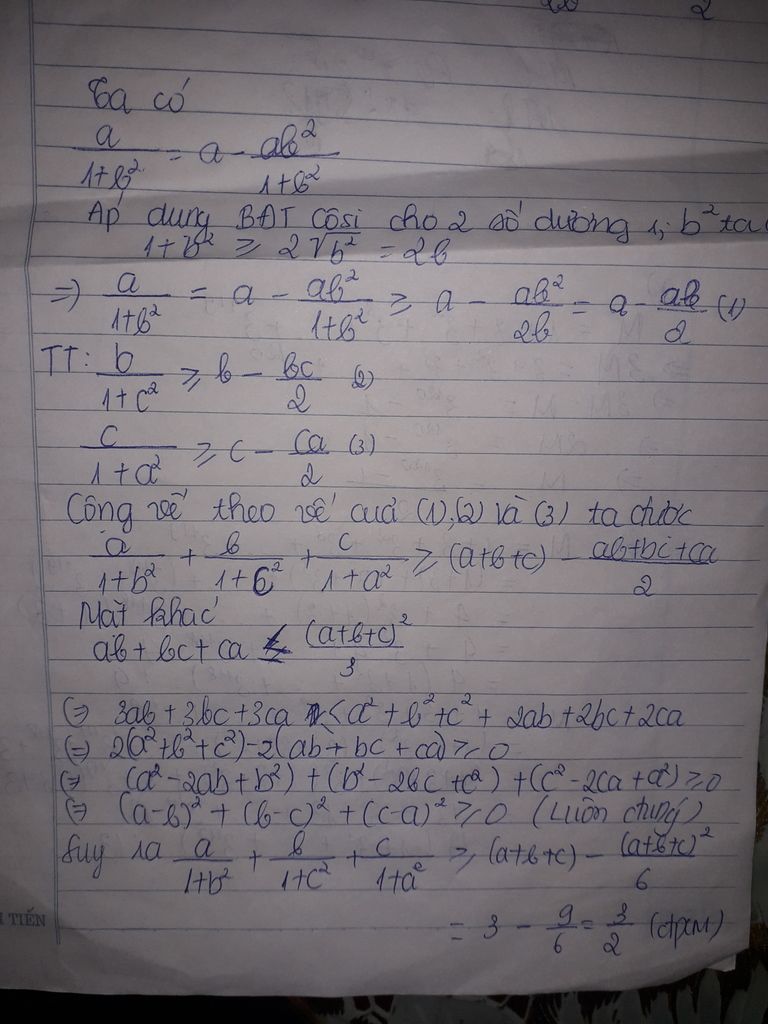 2
Ta có
a/(1+b²) = a - ab²/(1+b²)
Áp dụng BĐT côsi cho 2 số dương 1; b² ta
1+b² ≥ 2√b² = 2b
=) a/(1+b²) = a - ab²/(1+b²) ≥ a - ab²/2b = a - ab/2 (1)
TT: b/(1+c²) ≥ b - bc/2 (2)
c/(1+a²) ≥ c - ca/2 (3)
Công vế theo vế cuả (1),(2) và (3) ta được
a/(1+b²) + b/(1+c²) + c/(1+a²) ≥ (a+b+c) - (ab+bc+ca)/2
Mặt khác
ab + bc + ca ≤ (a+b+c)²/3
(=) 3ab + 3bc + 3ca ≤ a² + b² + c² + 2ab + 2bc + 2ca
(=) 2(a²+b²+c²) - 2(ab + bc + ca) ≥ 0
(=) (a² - 2ab + b²) + (b² - 2bc + c²) + (c² - 2ca + a²) ≥ 0
(=) (a-b)² + (b-c)² + (c-a)² ≥ 0 (Luôn đúng)
Suy ra a/(1+b²) + b/(1+c²) + c/(1+a²) ≥ (a+b+c) - (a+b+c)²/6
TIẾN
= 3 - 9/6 = 3/2 (đpcm)